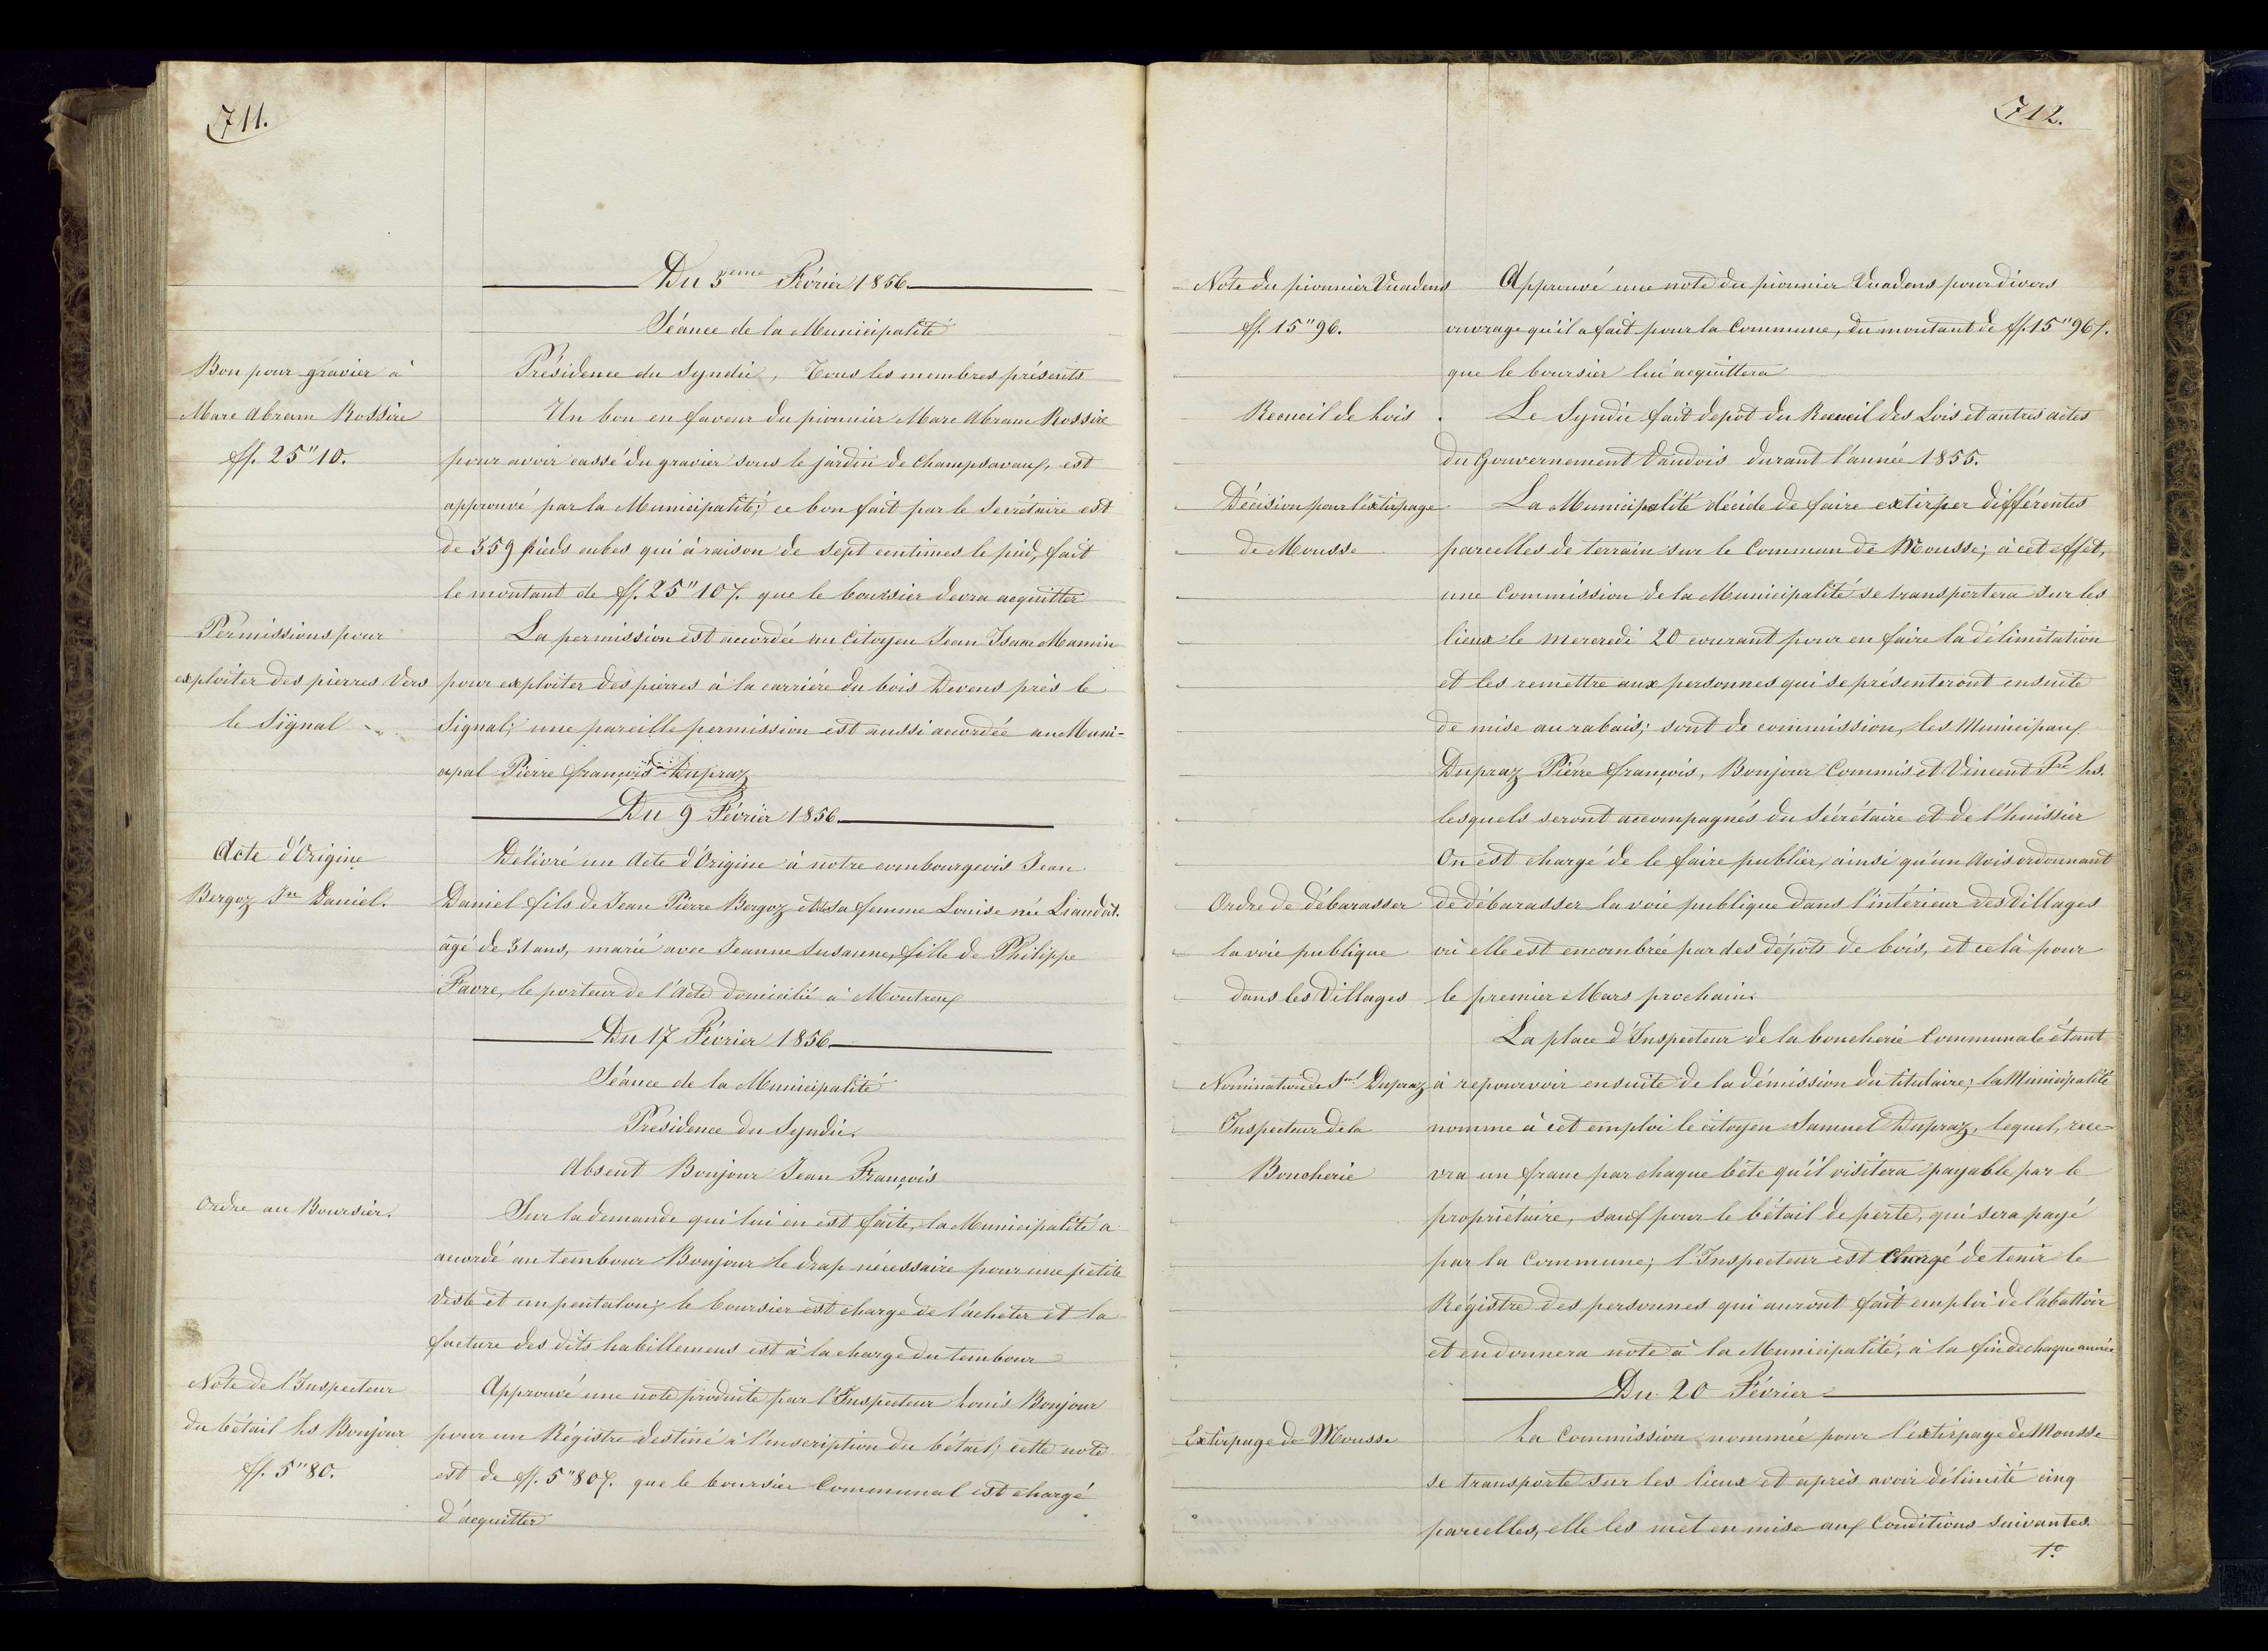 711.
Du 5ème Février 1856.
Séance de la Municipalité
Présidence du Syndic, Tous les membres présents
Bon pour gravier à
Marc Abram Rossire
ff. 25"10.
Un bon en faveur du pionnier Marc Abram Rossire
pour avoir cassé du gravier sous le jardin de Champsavaux, est
approuvé par la Municipalité; ce bon fait par le Secrétaire est
de 359 pieds cubes qui à raison de sept centimes le pied, fait
le montant de ff. 25"10 7. que le boursier devra acquitter
Permissions pour
exploiter des pierres Vers
le Signal
La permission est accordée au Citoyen Jean Isaac Mamin
pour exploiter des pierres à la carrière du bois Devens près le
Signal; une pareille permission est aussi accordée au Muni-
cipal Pierre françois Dupraz
Du 9 Février 1856.
Acte d'Origine
Bergoz Jn Daniel.
Délivré un Acte d'Origine à notre combourgeois Jean
Daniel fils de Jean Pierre Bergoz et de sa femme Louise née Liaudat.
âgé de 31 ans, marié avec Jeanne Susanne, fille de Philippe
Favre, le porteur de l'Acte domicilié à Montreux
Du 17 Février 1856.
Séance de la Municipalité
Présidence du Syndic.
Absent Bonjour Jean François
Ordre au Boursier.
Sur la demande qui lui en est faite, la Municipalité a
accordé au tembour Bonjour le drap nécessaire pour une petite
Veste et un pentalon; le boursier est chargé de l'acheter et la
facture des dits habillemens est à la charge du tembour
Note de l'Inspecteur
du bétail Ls Bonjour
ff. 5"80.
Approuvé une note produite par l'Inspecteur Louis Bonjour
pour un Régistre destiné à l'inscription du bétail; cette note
est de ff. 5"80 7. que le boursier Communal est chargé
d'acquitter
712.
Note du pionnier Vuadens
ff. 15"96.
Approuvé une note du pionnier Vuadens pour divers
ouvrage qu'il a fait pour la Commune, du montant de ff. 15"96 7.
que le boursier lui acquittera
Recueil de Lois
Le Syndic fait depot du Recueil des Lois et autres actes
du Gouvernement Vaudois durant l'année 1855.
Décision pour l'extirpage
de Mousse
La Municipalité décide de faire extirper différentes
parcelles de terrain sur le Commun de Mousse; à cet effet,
une Commission de la Municipalité se transportera sur les
lieux le mercredi 20 courant pour en faire la délimitation
et les remettre aux personnes qui se présenteront ensuite
de mise au rabais; sont de commission, les Municipaux
Dupraz Pierre françois, Bonjour Commis et Vincent Pre Ls.
lesquels seront accompagnés du Sécrétaire et de l'huissier
On est chargé de le faire publier, ainsi qu'un Avis ordonnant
Ordre de débarasser
la voie publique
dans les Villages
de débarasser la voie publique dans l'intérieur des Villages
où elle est encombrée par des dépôts de bois, et celà pour
le premier Mars prochain.
La place d'Inspecteur de la boucherie Communale étant
Nomination de Sml Dupraz
Inspecteur de la
Boucherie
à repourvoir ensuite de la démission du titulaire; la Municipalité
nomme à cet emploi le citoyen Samuel Dupraz, lequel, rece-
vra un franc par chaque bête qu'il visitera payable par le
propriétaire, sauf pour le bétail de perte, qui sera payé
par la Commune; l'Inspecteur est Chargé de tenir le
Régistre des personnes qui auront fait emploi de l'abattoir
et en donnera note à la Municipalité, à la fin de chaque année
Du 20 Février
Extirpage de Mousse
La Commission nommée pour l'extirpage de Mousse
se transporte sur les lieux et après avoir délimité cinq
parcelles, elle les met en mise aux Conditions suivantes.
1°